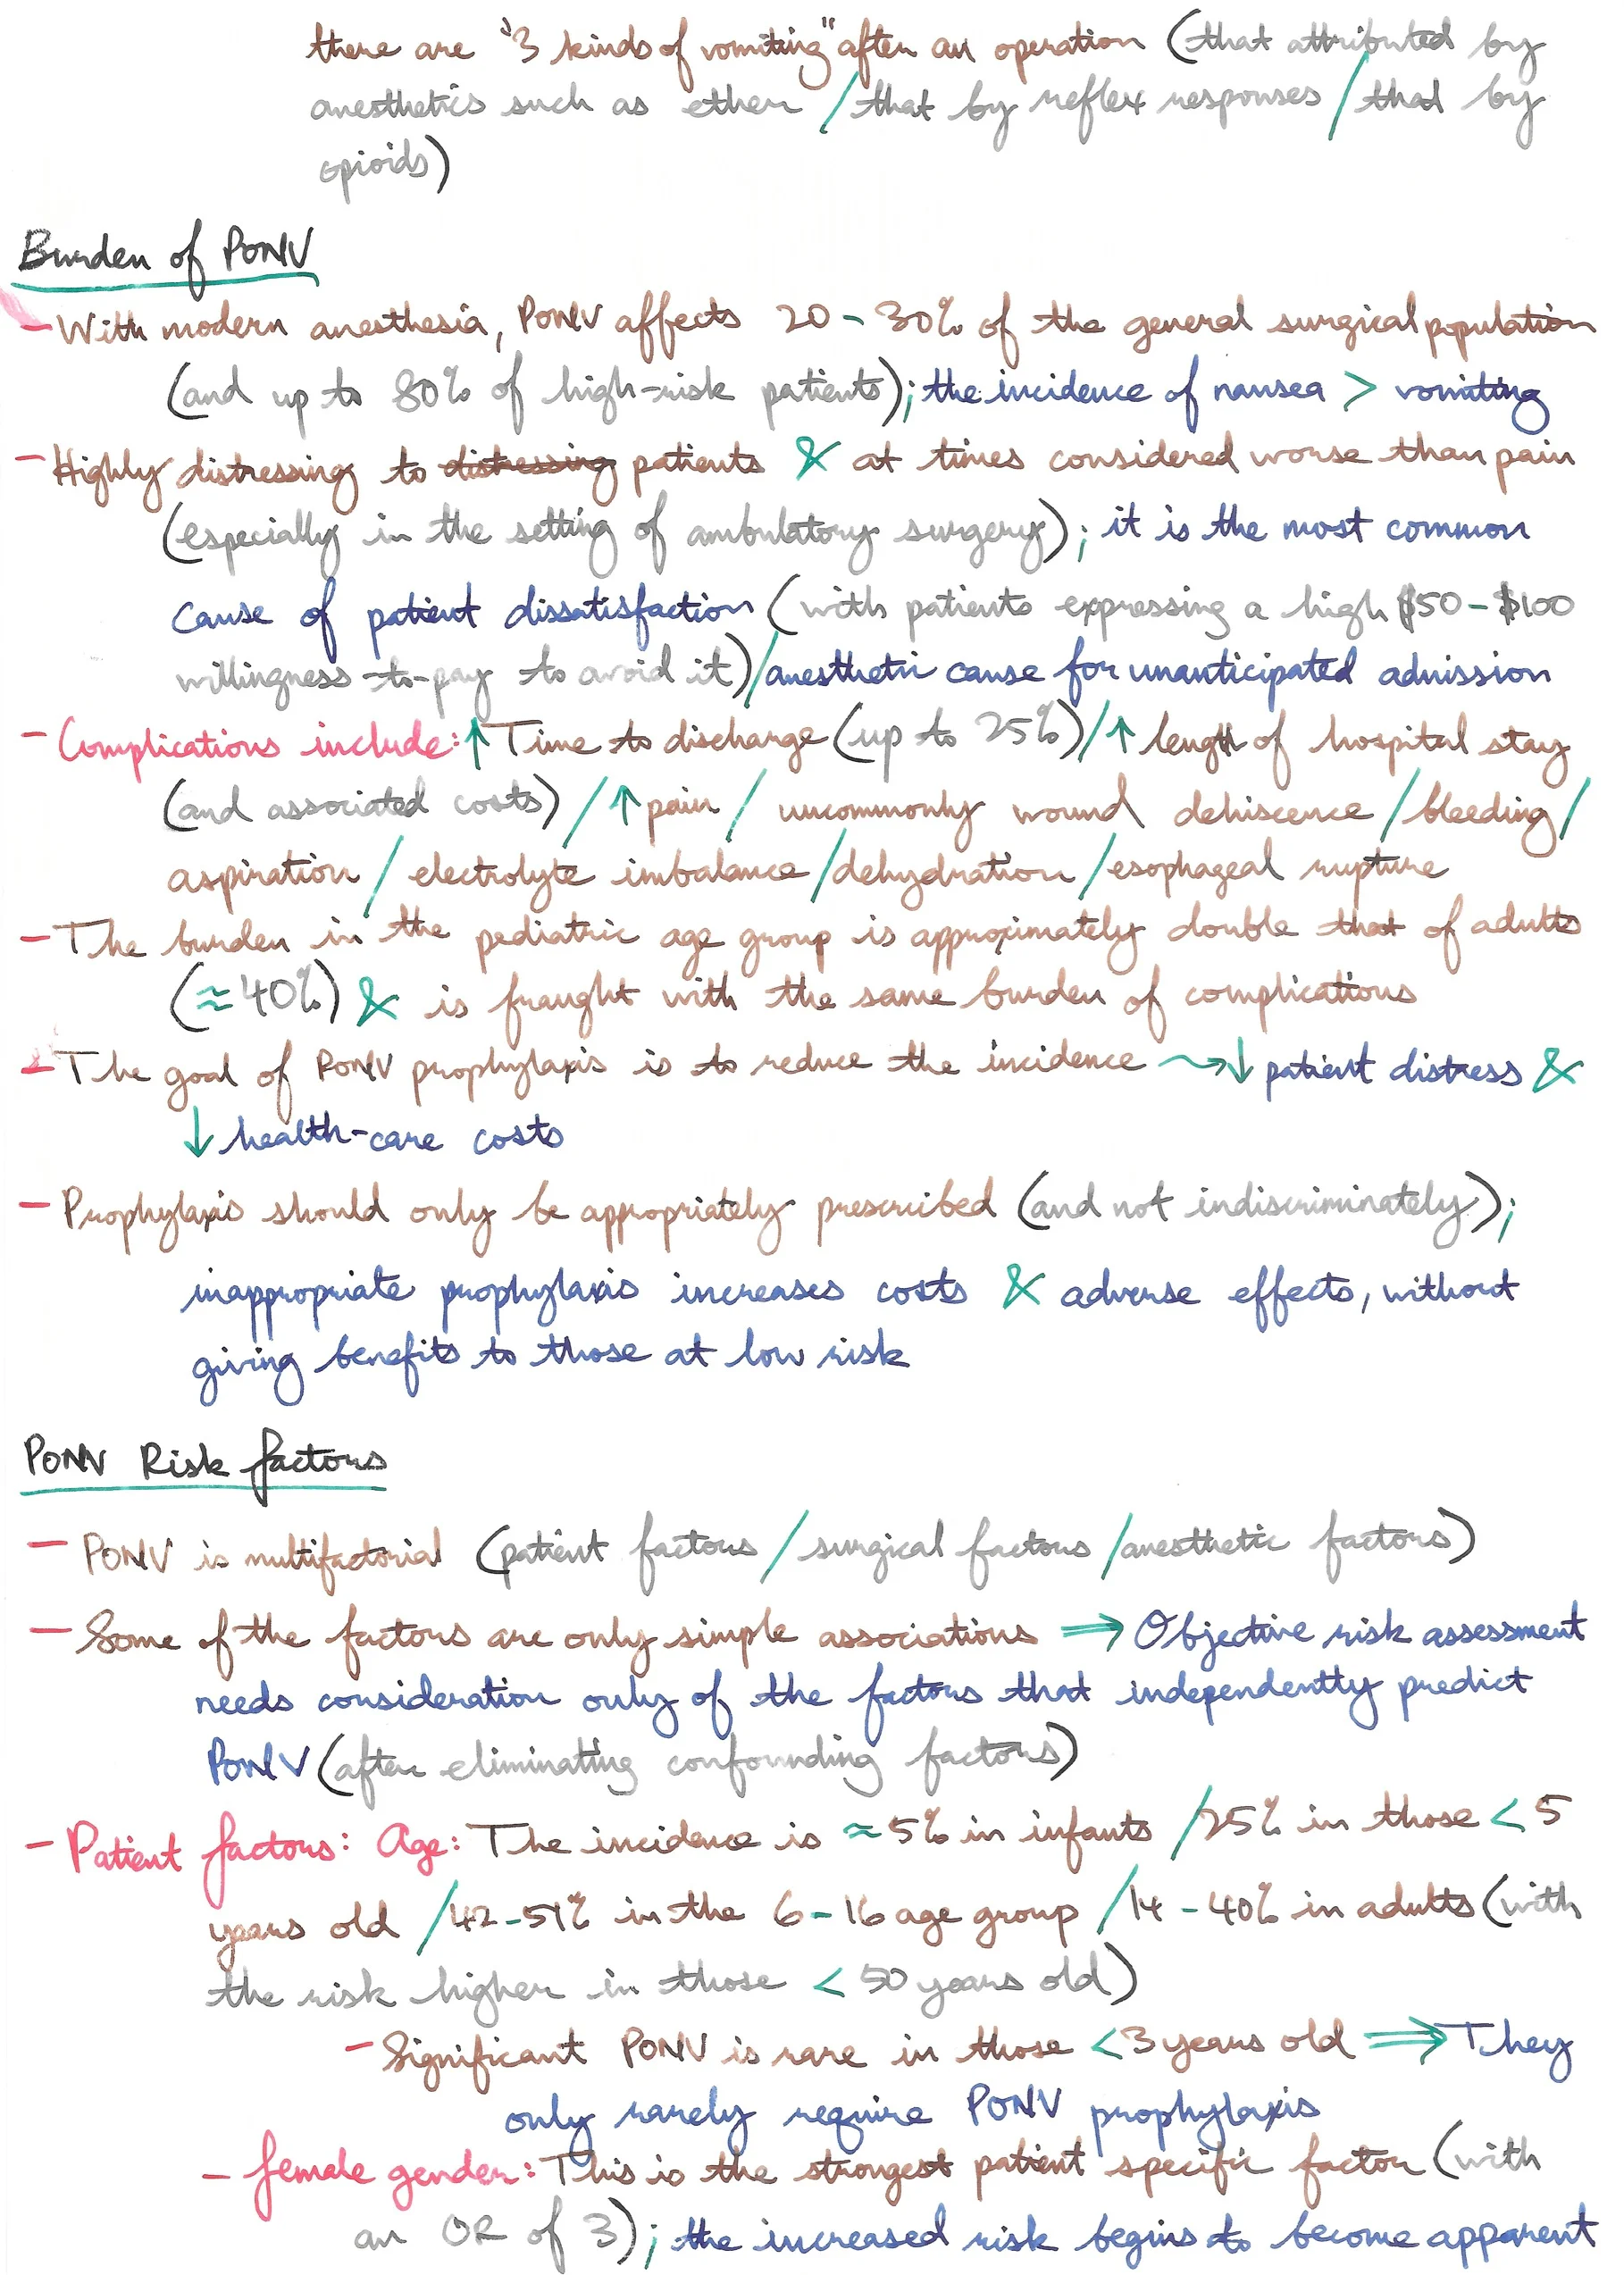 there are "3 kinds of vomiting" after an operation (that attributed by
anesthetics such as ether / that by reflex responses / that by
opioids)
Burden of PONV
- With modern anesthesia, PONV affects 20-30% of the general surgical population
(and up to 80% of high-risk patients); the incidence of nausea > vomiting
- Highly distressing to distressing patients & at times considered worse than pain
(especially in the setting of ambulatory surgery); it is the most common
cause of patient dissatisfaction (with patients expressing a high $50-$100
willingness-to-pay to avoid it) / anesthetic cause for unanticipated admission
- Complications include: ↑ Time to discharge (up to 25%) / ↑ length of hospital stay
(and associated costs) / ↑ pain / uncommonly wound dehiscence / bleeding /
aspiration / electrolyte imbalance / dehydration / esophageal rupture
- The burden in the pediatric age group is approximately double that of adults
(≈40%) & is fraught with the same burden of complications
- The goal of PONV prophylaxis is to reduce the incidence ⇝ ↓ patient distress &
↓ health-care costs
- Prophylaxis should only be appropriately prescribed (and not indiscriminately);
inappropriate prophylaxis increases costs & adverse effects, without
giving benefits to those at low risk
PONV Risk factors
- PONV is multifactorial (patient factors / surgical factors / anesthetic factors)
- Some of the factors are only simple associations ⇒ Objective risk assessment
needs consideration only of the factors that independently predict
PONV (after eliminating confounding factors)
- Patient factors: Age: The incidence is ≈5% in infants / 25% in those < 5
years old / 42-51% in the 6-16 age group / 14-40% in adults (with
the risk higher in those < 50 years old)
- Significant PONV is rare in those < 3 years old ⇒ They
only rarely require PONV prophylaxis
- female gender: This is the strongest patient specific factor (with
an OR of 3); the increased risk begins to become apparent